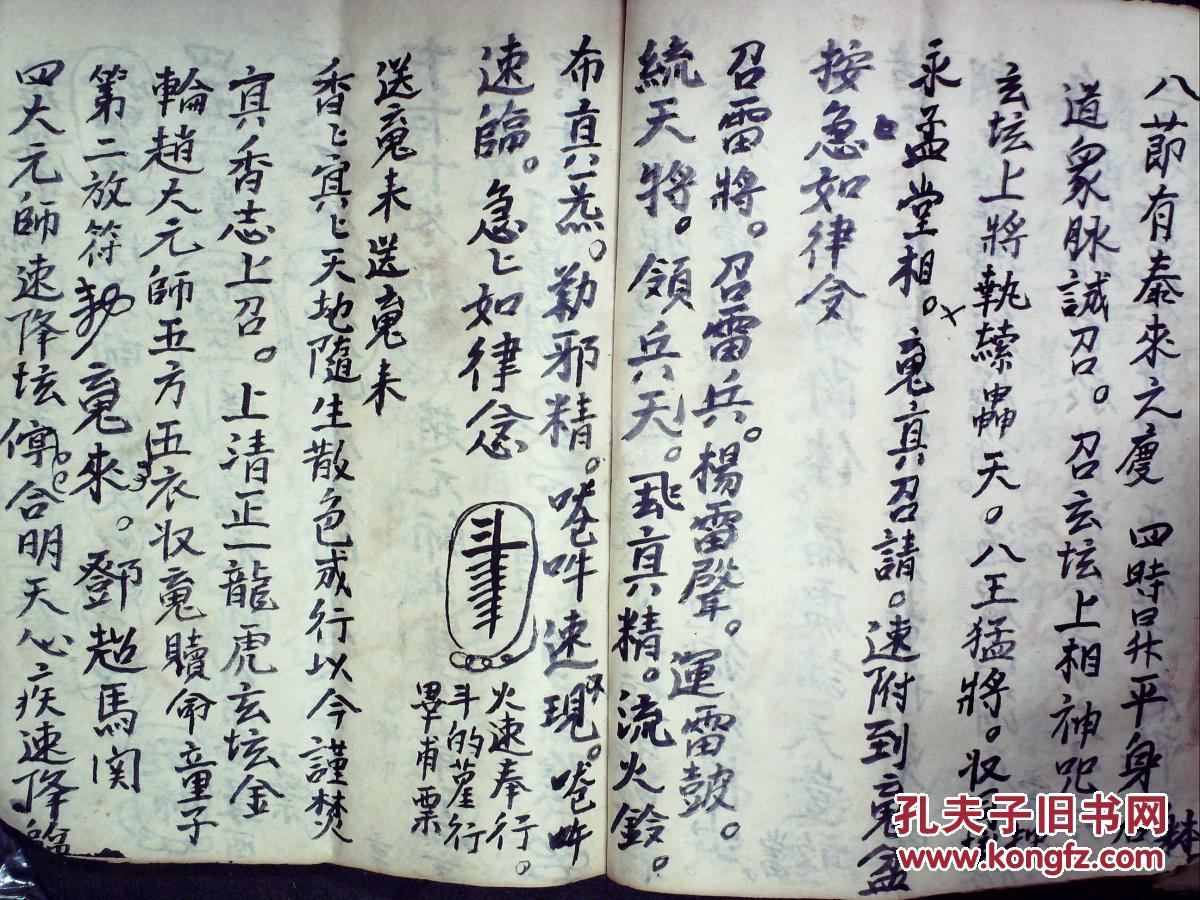 八節有泰來之慶 四時昇平身
道眾脉誠召。召玄坛上相神咒
玄坛上將執 天。八王猛將。收
永孟堂相。竟真召請。速附到竟盆
按急如律令
召雷將。召雷兵。楊雷聲。運雷鼓。
統天將。領兵天。真精。流火鈴。
布真炁。勒邪精。吽速現。吽
速臨。急〻如律令
火速奉行。
斗的行
畢甫票
送竟来送竟来
香〻冥〻天地隨生散色成行以今謹焚
真香志上召。上清正一龍虎玄坛金
輪趙大元師五方五衣收竟贖命童子
第二放符勅竟來。鄧趙馬関
四大元師速降坛停。合明天心疾速降臨
孔夫子旧书网
www.kongfz.com